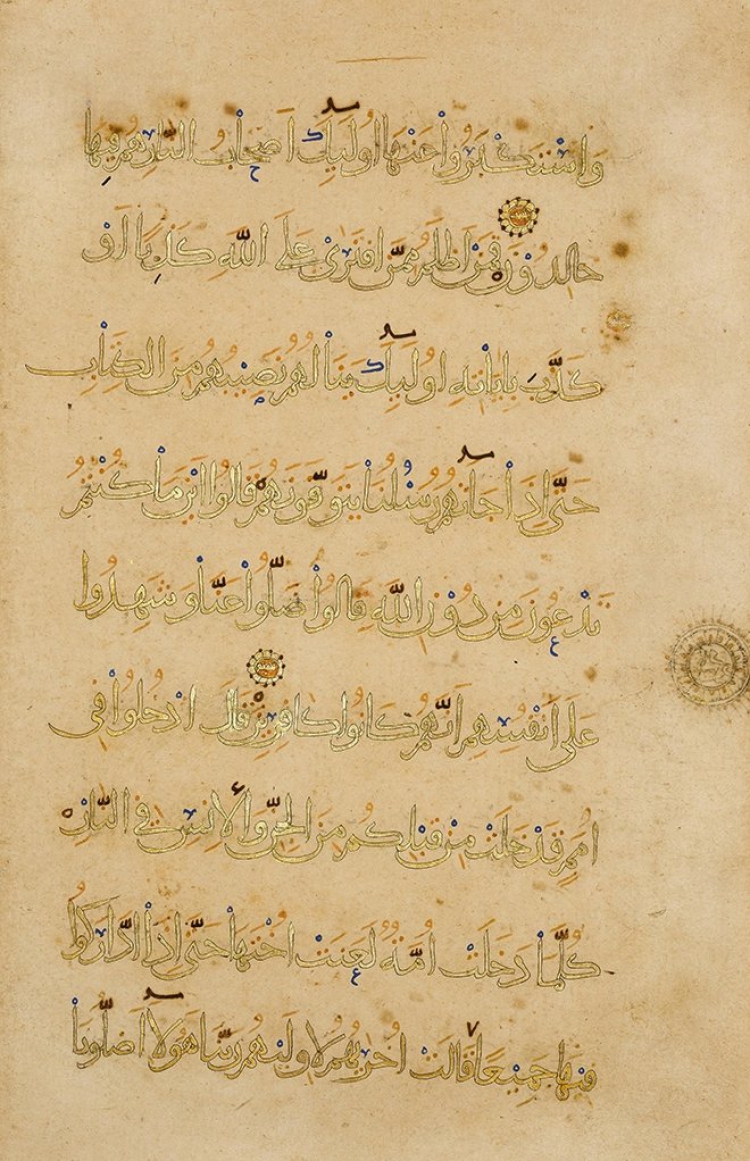 وَاسْتَكْبَرُوا عَنْهَا أُولَٰئِكَ أَصْحَابُ النَّارِ هُمْ فِيهَا
خَالِدُونَ فَمَنْ أَظْلَمُ مِمَّنِ افْتَرَىٰ عَلَى اللَّهِ كَذِبًا أَوْ
كَذَّبَ بِآيَاتِهِ أُولَٰئِكَ يَنَالُهُمْ نَصِيبُهُمْ مِنَ الْكِتَابِ
حَتَّىٰ إِذَا جَاءَتْهُمْ رُسُلُنَا يَتَوَفَّوْنَهُمْ قَالُوا أَيْنَ مَا كُنْتُمْ
تَدْعُونَ مِنْ دُونِ اللَّهِ قَالُوا ضَلُّوا عَنَّا وَشَهِدُوا
عَلَىٰ أَنْفُسِهِمْ أَنَّهُمْ كَانُوا كَافِرِينَ قَالَ ادْخُلُوا فِي
أُمَمٍ قَدْ خَلَتْ مِنْ قَبْلِكُمْ مِنَ الْجِنِّ وَالْإِنْسِ فِي النَّارِ
كُلَّمَا دَخَلَتْ أُمَّةٌ لَعَنَتْ أُخْتَهَا حَتَّىٰ إِذَا ادَّارَكُوا
فِيهَا جَمِيعًا قَالَتْ أُخْرَاهُمْ لِأُولَاهُمْ رَبَّنَا هَٰؤُلَاءِ أَضَلُّونَا